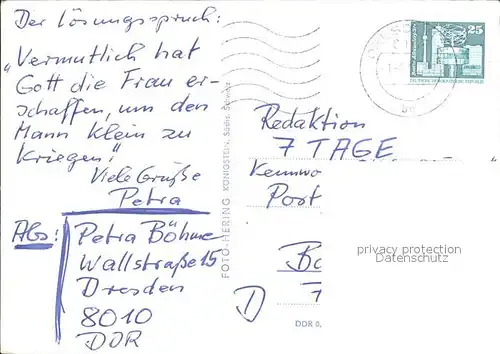 Der Lösungsspruch:
„Vermutlich hat
Gott die Frau er-
schaffen, um den
Mann klein zu
kriegen!"
Viele Grüße
Petra
Abs: Petra Böhme
Wallstraße 15
Dresden
8010
DDR
FOTO-HERING KÖNIGSTEIN, Sächs. Schweiz
25
Redaktion
7 TAGE
Kennwo
Post
Ba
D
DDR 0,
privacy protection
Datenschutz